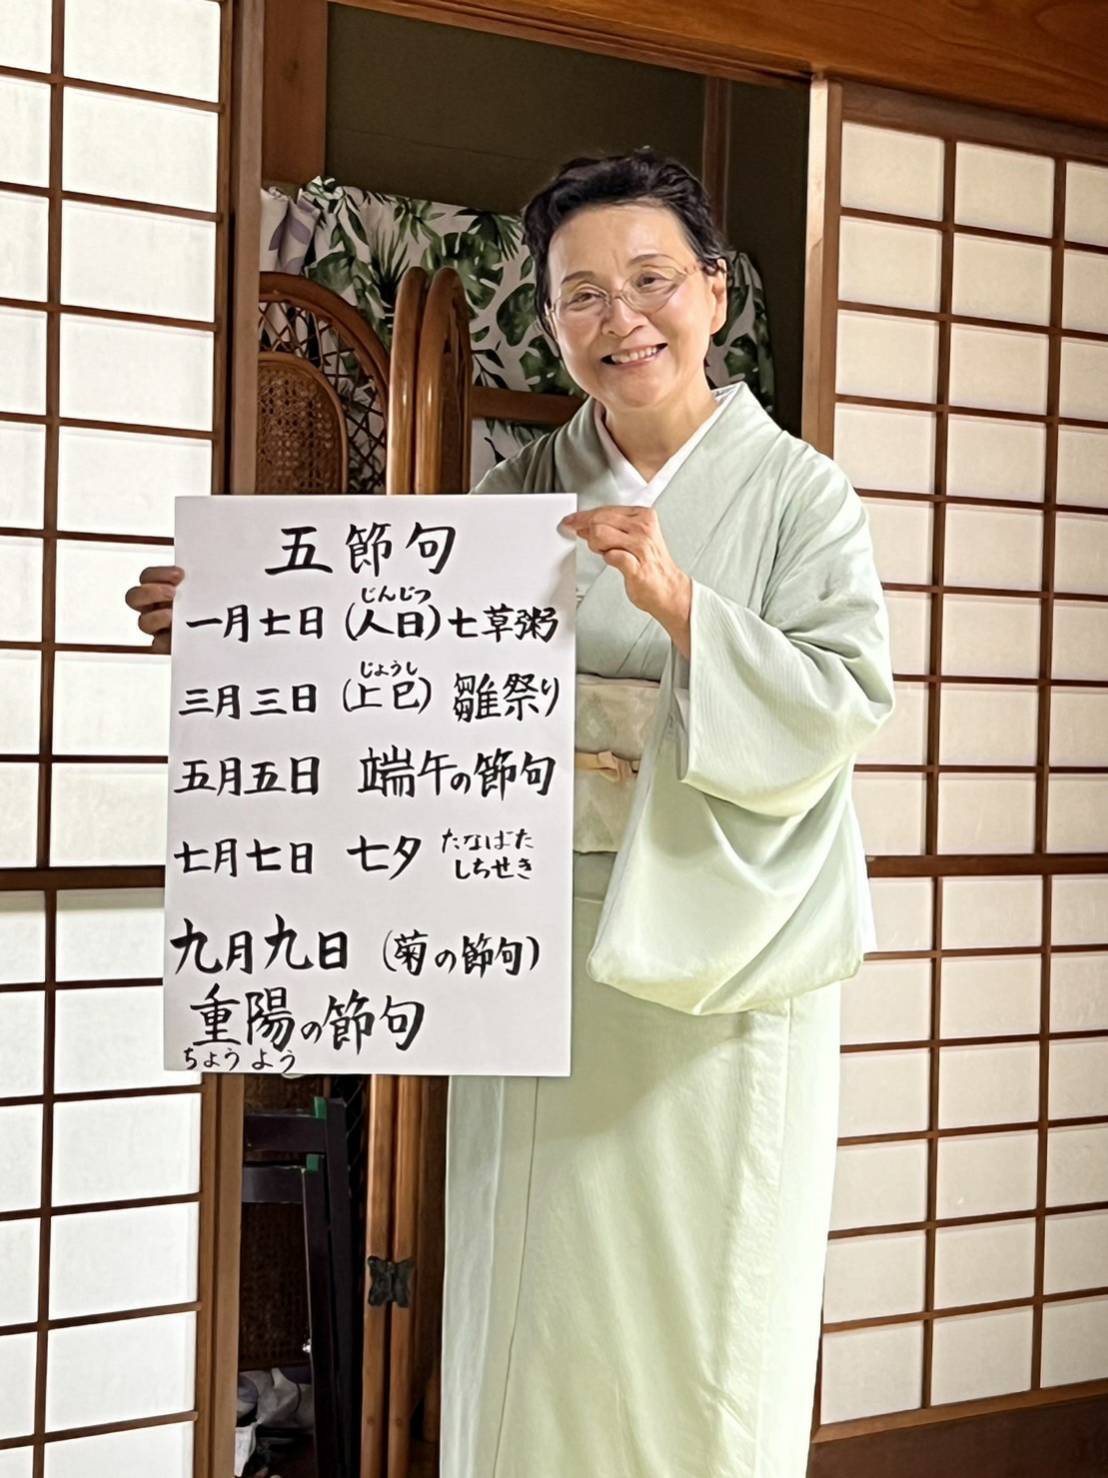 五節句
じんじつ
一月七日(人日)七草粥
じょうし
三月三日(上巳)雛祭り
五月五日 端午の節句
七月七日 七夕 たなばた
しちせき
九月九日(菊の節句)
重陽の節句
ちょうよう